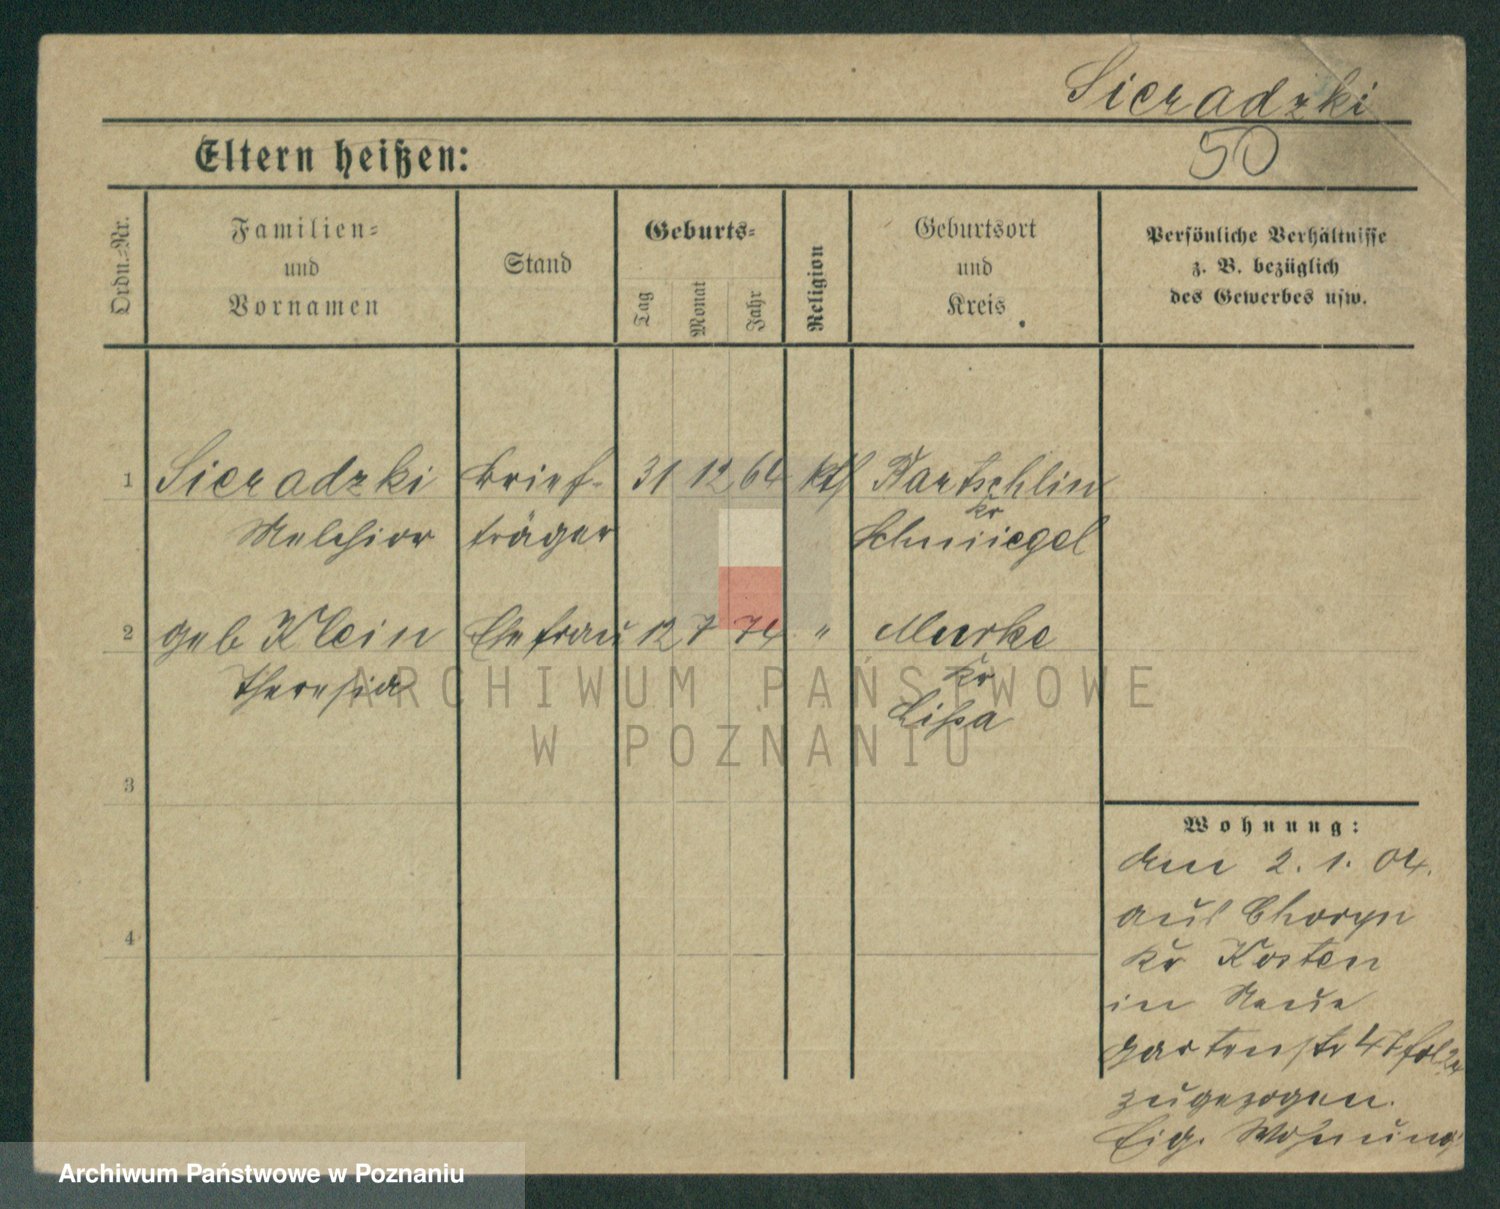 Sieradzki
50
Eltern heißen:
Ordn.-Nr.
Familien-
und
Vornamen
Stand
Geburts-
Tag
Monat
Jahr
Religion
Geburtsort
und
Kreis
Persönliche Verhältnisse
z. B. bezüglich
des Gewerbes usw.
1 Sieradzki Brief- 31 12 64 kth Bartschlin
Kr
Melchior träger Schmiegel
2 geb Klein Ehefrau 12 7 74 " Murke
Kr
Theresia Lissa
3
4
Wohnung:
den 2. 1. 04.
aus Choryn
Kr Kosten
in Neue
Gartenstr 47
zugezogen.
Eig. Wohnung
ARCHIWUM PAŃSTWOWE
W POZNANIU
Archiwum Państwowe w Poznaniu